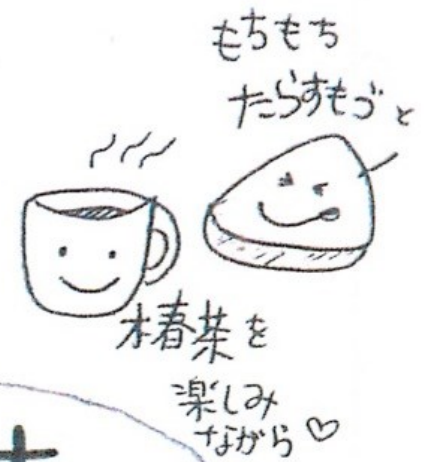 もちもち
たらすもごと
椿茶を
楽しみ
ながら♡